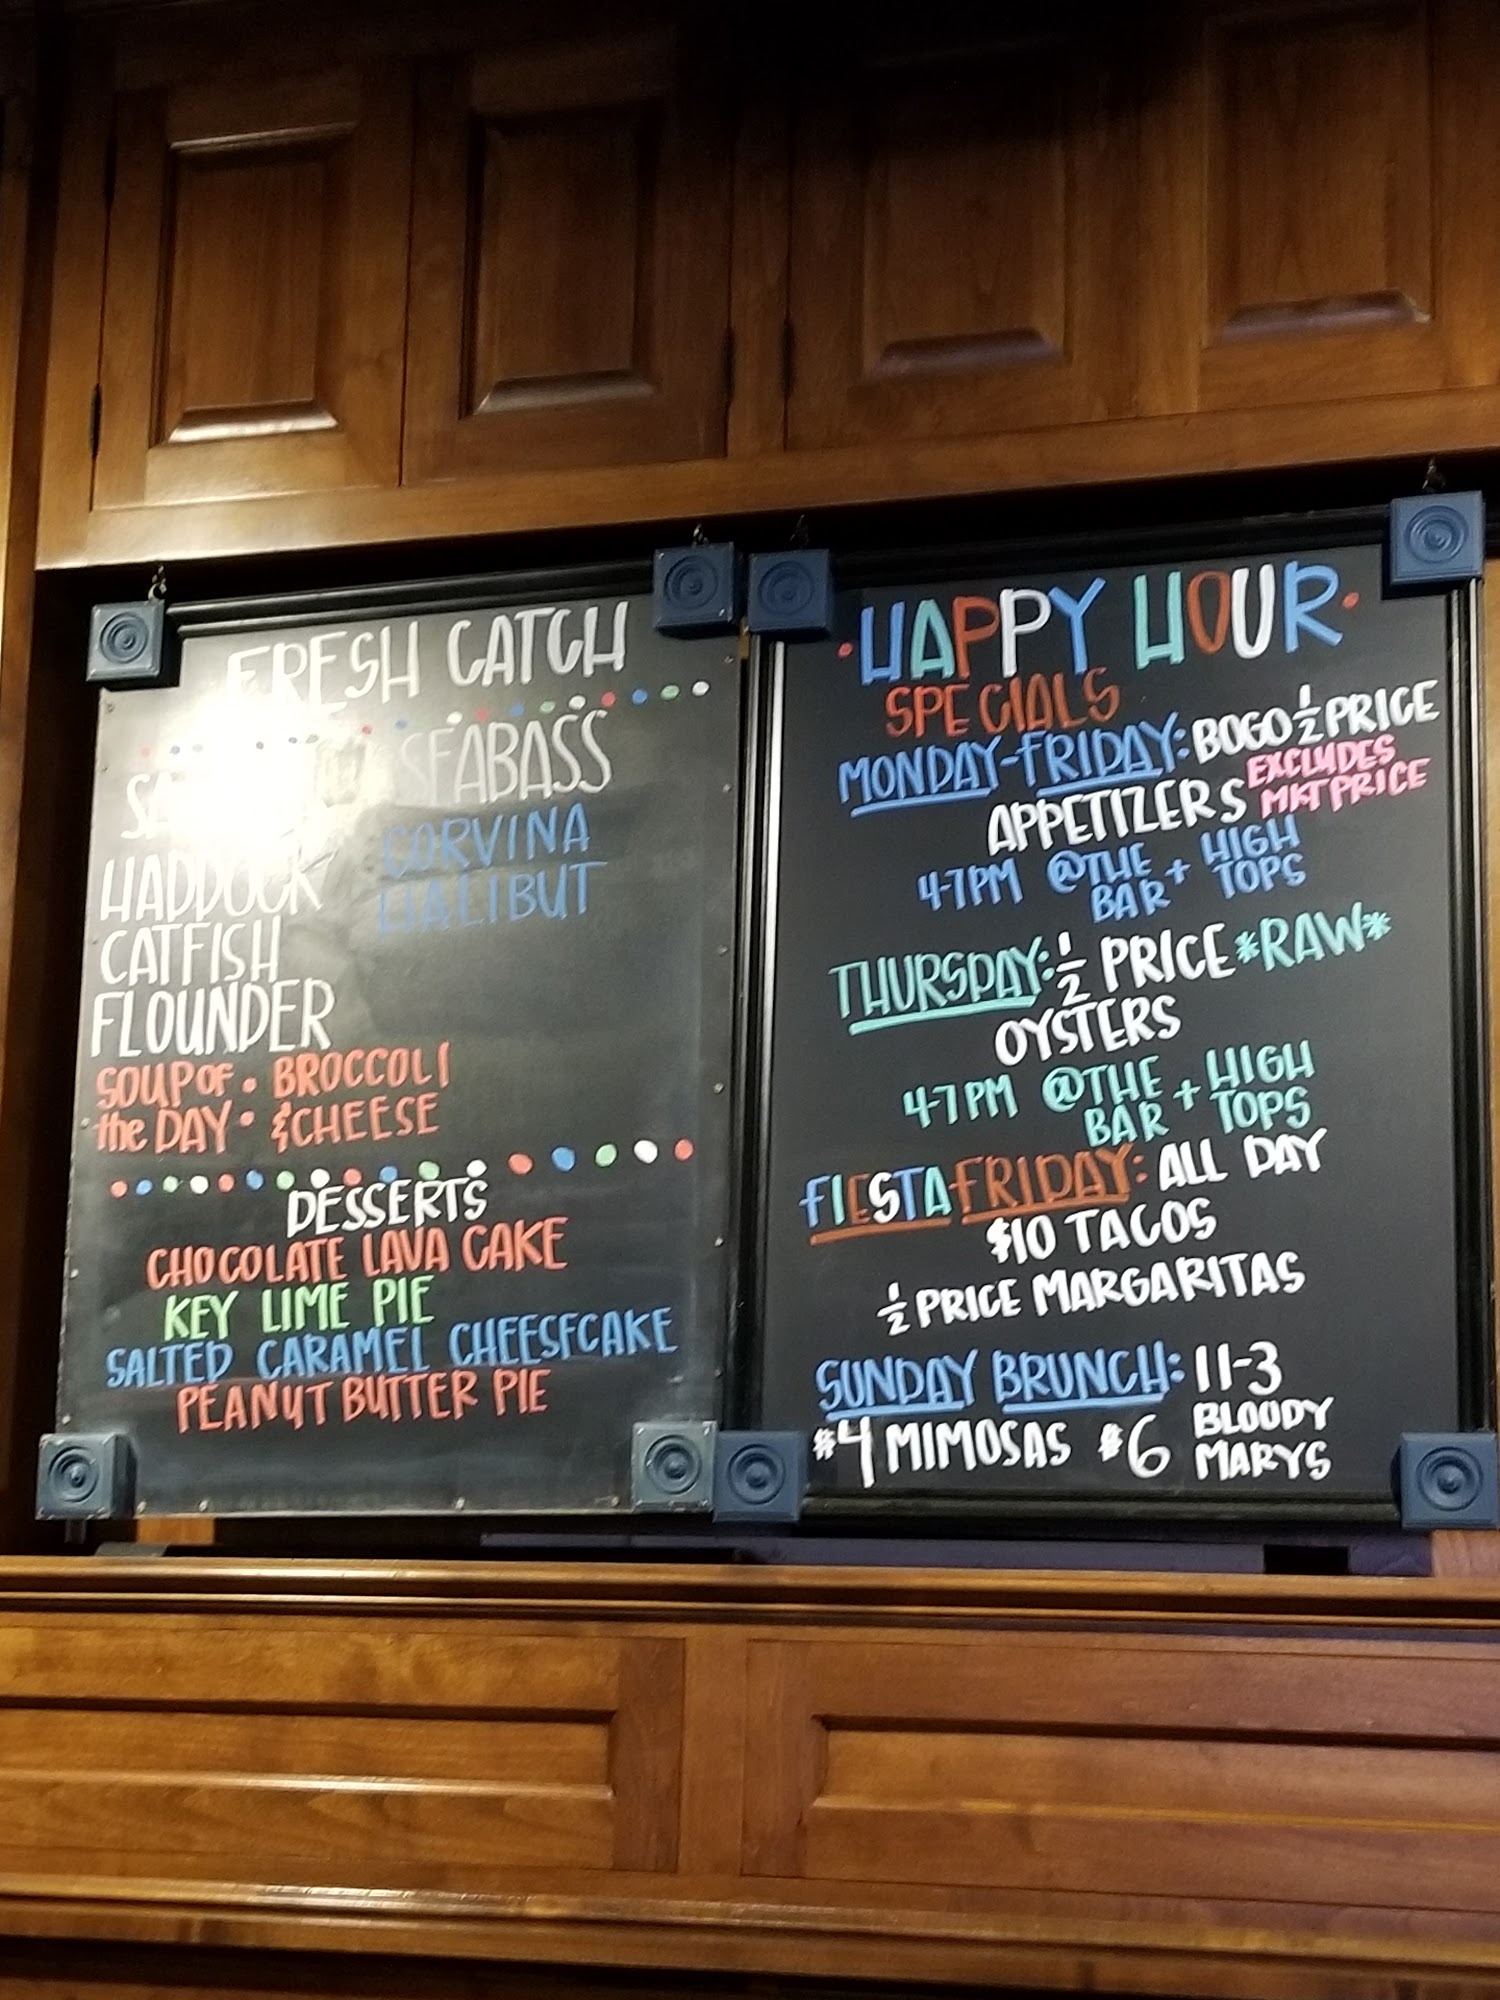 FRESH CATCH
SEABASS
HADDOCK
CORVINA
CATFISH
HALIBUT
FLOUNDER
SOUP OF • BROCCOLI
the DAY • & CHEESE
DESSERTS
CHOCOLATE LAVA CAKE
KEY LIME PIE
SALTED CARAMEL CHEESECAKE
PEANUT BUTTER PIE
• HAPPY HOUR •
SPECIALS
MONDAY-FRIDAY: BOGO 1/2 PRICE
APPETIZERS EXCLUDES
MKT PRICE
4-7PM @THE + HIGH
BAR TOPS
THURSDAY: 1/2 PRICE *RAW*
OYSTERS
4-7PM @THE + HIGH
BAR TOPS
FIESTA FRIDAY: ALL DAY
$10 TACOS
1/2 PRICE MARGARITAS
SUNDAY BRUNCH: 11-3
$4 MIMOSAS $6 BLOODY
MARYS